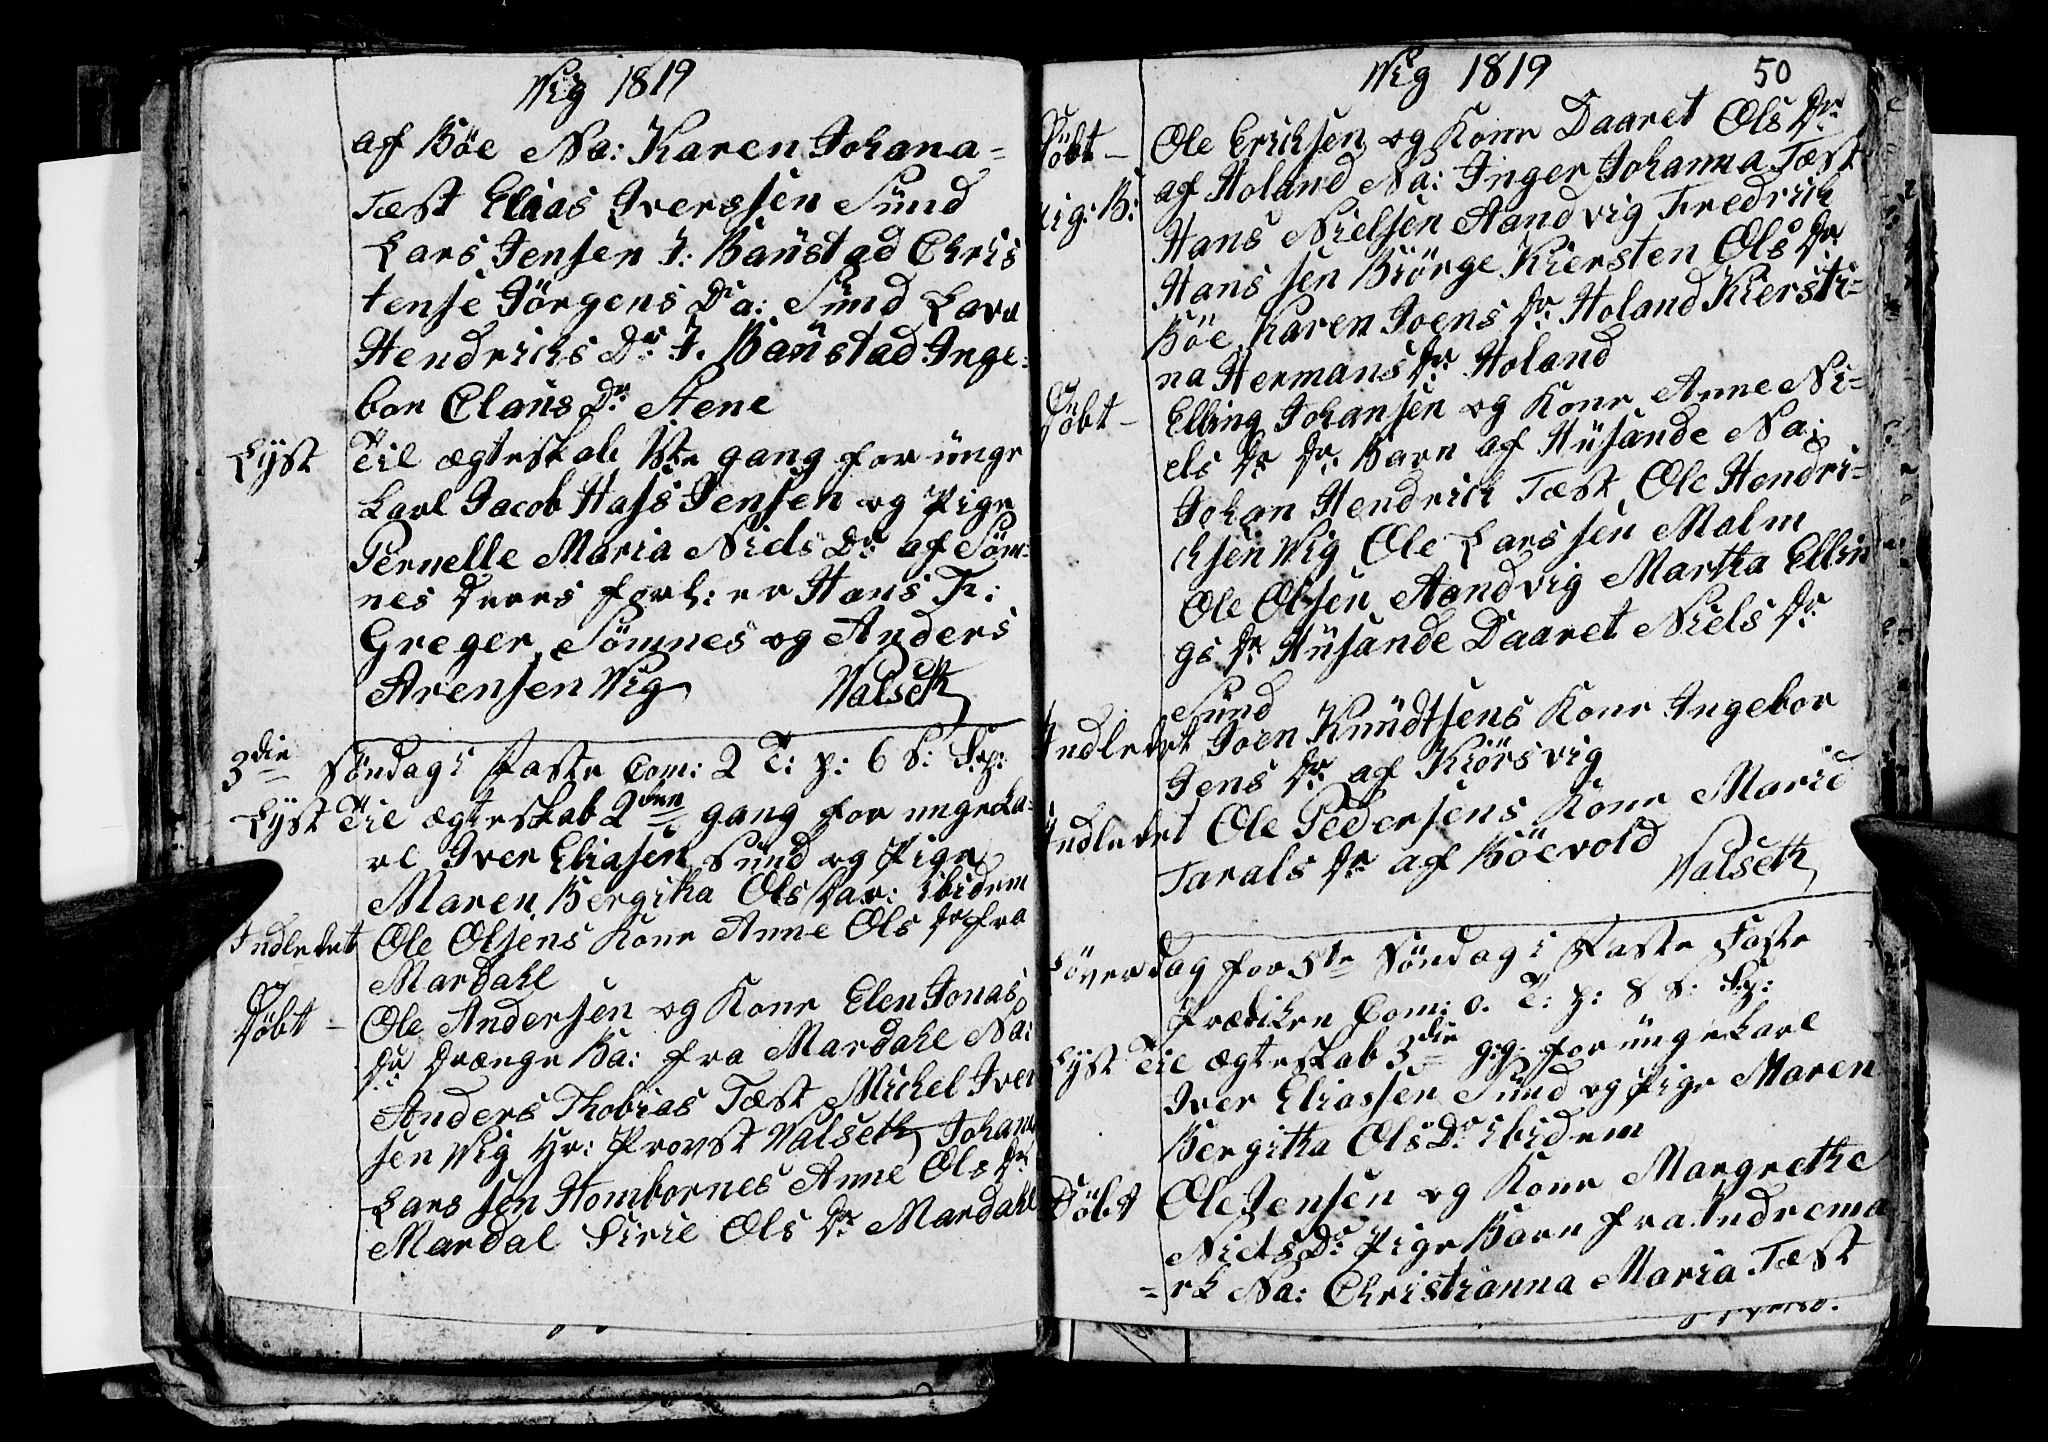 Wig 1819
af Böe Na: Karen Johana=
Tæst Elias Iverssen Sünd
Lars Jensen I: Baüstad Chris
tense Jörgens Da: Sünd Lava
Hendrichs Dr I. Baüstad Inge:
bor Claüs Dr Stene
Lyst Til ægteskab 1ste gang for ünge
Karl Jacob Hass Jensen og Pige
Pernelle Maria Niels Dr af Söm=
nes Deres forl: er Hans Fr:
Greger Sömnes og Anders
Arensen Wig Walseth
3die Söndag i Faste Com: 2 T: p: 6 S: Sp:
Lyst Til ægteskab 2den gang for unge Ka=
rl Iver Eliasen Sünd og Pige
Maren Bergitha Ols Dar: ibidem
Indledet Ole Olsens Kone Anne Ols Dr fra
Mardahl
Döbt – Ole Andersen og Kone Elen Jonas
Dr Drænge Ba: fra Mardahl Na:
Anders Thobias Tæst Michel Iver
sen Wig Hr: Provst Walseth Johan
Lars sen Hombornes Anne Ols Dr
Mardal Sirie Ols Dr Mardahl
Wig 1819 50
Döbt – Ole Erichsen og Kone Daaret Ols Dr
Pig: B: af Holand Na: Inger Johanna Tæst
Hans Nielsen Aandvig Fredrich
Hans sen Biörge Kiersten Ols Dr
Böe Karen Joens Dr Holand Kiersti=
na Hermans Dr Holand
Döbt – Elling Johansen og Kone Anne Ni=
els Dr Dr: Barn af Hüsande Na:
Johan Hendrich Tæst Ole Hendri=
chsen Wig Ole Lars sen Malm
Ole Olsen Aandvig Martha Ellin
gs Dr Hüsande Daaret Niels Dr
Sünd
Indledet Joen Knüdtsens Kone Ingebor
Jens Dr af Kiörsvig
Indledet Ole Pedersens Kone Marie
Tarals Dr af Böevold Walseth
Löverdag for 5te Söndag i Faste Faste
Prædiken Com: 0. T: p: 8 S: Sp:
Lyst Til ægteskab 3die gg: for ünge karl
Iver Eliassen Sünd og Pige Maren
Bergitha Ols Dr ibidem
Döbt Ole Jensen og Kone Margrethe
Niels Dr Pige Barn fra Indrema
=rk Na: Christianna Maria Tæst